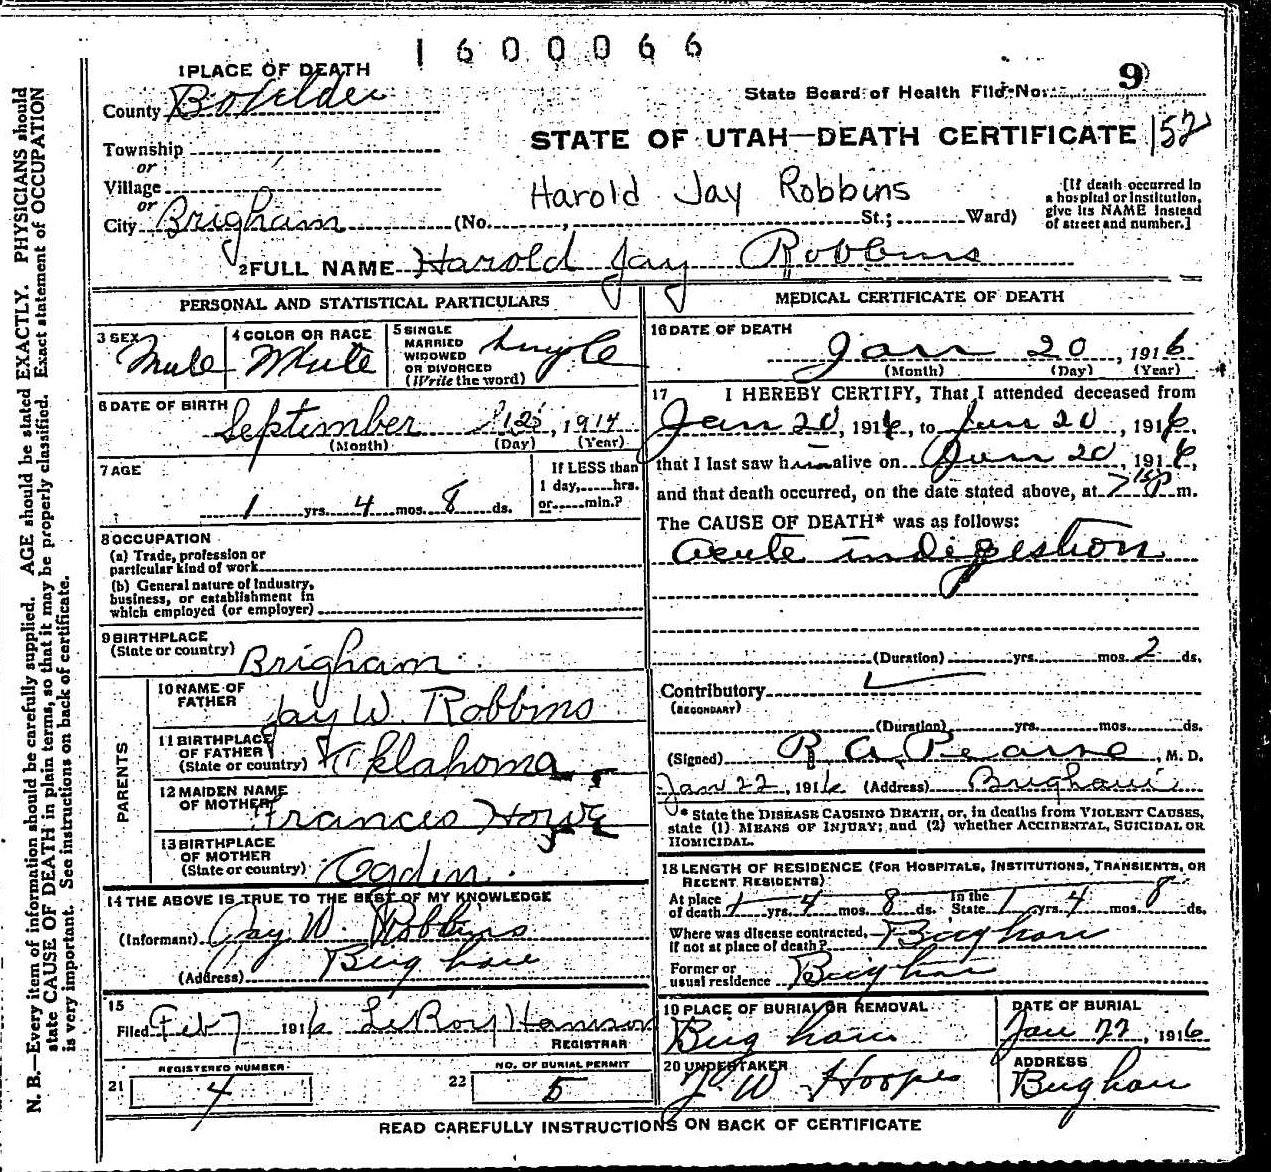 1600066
1 PLACE OF DEATH
County Boxelder
State Board of Health File No. 9
STATE OF UTAH—DEATH CERTIFICATE 152
Township
or
Village
or
City Brigham (No. , St.; Ward)
Harold Jay Robbins
[If death occurred in a hospital or institution, give its NAME instead of street and number.]
2 FULL NAME Harold Jay Robbins
PERSONAL AND STATISTICAL PARTICULARS
3 SEX Male
4 COLOR OR RACE White
5 SINGLE MARRIED WIDOWED OR DIVORCED (Write the word) Single
6 DATE OF BIRTH September 12, 1914
(Month) (Day) (Year)
7 AGE
1 yrs. 4 mos. 8 ds.
If LESS than 1 day, hrs. or min.?
8 OCCUPATION
(a) Trade, profession or particular kind of work
(b) General nature of Industry, business, or establishment in which employed (or employer)
9 BIRTHPLACE
(State or country) Brigham
PARENTS
10 NAME OF FATHER Jay W. Robbins
11 BIRTHPLACE OF FATHER (State or country) Oklahoma
12 MAIDEN NAME OF MOTHER Frances Howe
13 BIRTHPLACE OF MOTHER (State or country) Ogden
14 THE ABOVE IS TRUE TO THE BEST OF MY KNOWLEDGE
(Informant) Jay W. Robbins
(Address) Brigham
15
Filed Feb 7 1916 LeRoy Hamson
REGISTRAR
REGISTERED NUMBER
21 4
NO. OF BURIAL PERMIT
22 5
MEDICAL CERTIFICATE OF DEATH
16 DATE OF DEATH
Jan 20, 1916
(Month) (Day) (Year)
17 I HEREBY CERTIFY, That I attended deceased from
Jan 20, 1916, to Jan 20, 1916,
that I last saw him alive on Jan 20, 1916,
and that death occurred, on the date stated above, at 7 P m.
The CAUSE OF DEATH* was as follows:
acute indigestion
(Duration) yrs. mos. 2 ds.
Contributory
(SECONDARY)
(Duration) yrs. mos. ds.
(Signed) R A Pearse, M. D.
Jan 22, 1916 (Address) Brigham
* State the DISEASE CAUSING DEATH, or, in deaths from VIOLENT CAUSES, state (1) MEANS OF INJURY; and (2) whether ACCIDENTAL, SUICIDAL OR HOMICIDAL.
18 LENGTH OF RESIDENCE (FOR HOSPITALS, INSTITUTIONS, TRANSIENTS, OR RECENT RESIDENTS)
At place of death 1 yrs. 4 mos. 8 ds. In the State 1 yrs. 4 mos. 8 ds.
Where was disease contracted, if not at place of death? Brigham
Former or usual residence Brigham
19 PLACE OF BURIAL OR REMOVAL
Brigham
DATE OF BURIAL
Jan 22, 1916
20 UNDERTAKER
W Hoopes
ADDRESS
Brigham
READ CAREFULLY INSTRUCTIONS ON BACK OF CERTIFICATE
N. B.—Every item of information should be carefully supplied. AGE should be stated EXACTLY. PHYSICIANS should
state CAUSE OF DEATH in plain terms, so that it may be properly classified. Exact statement of OCCUPATION
is very important. See instructions on back of certificate.